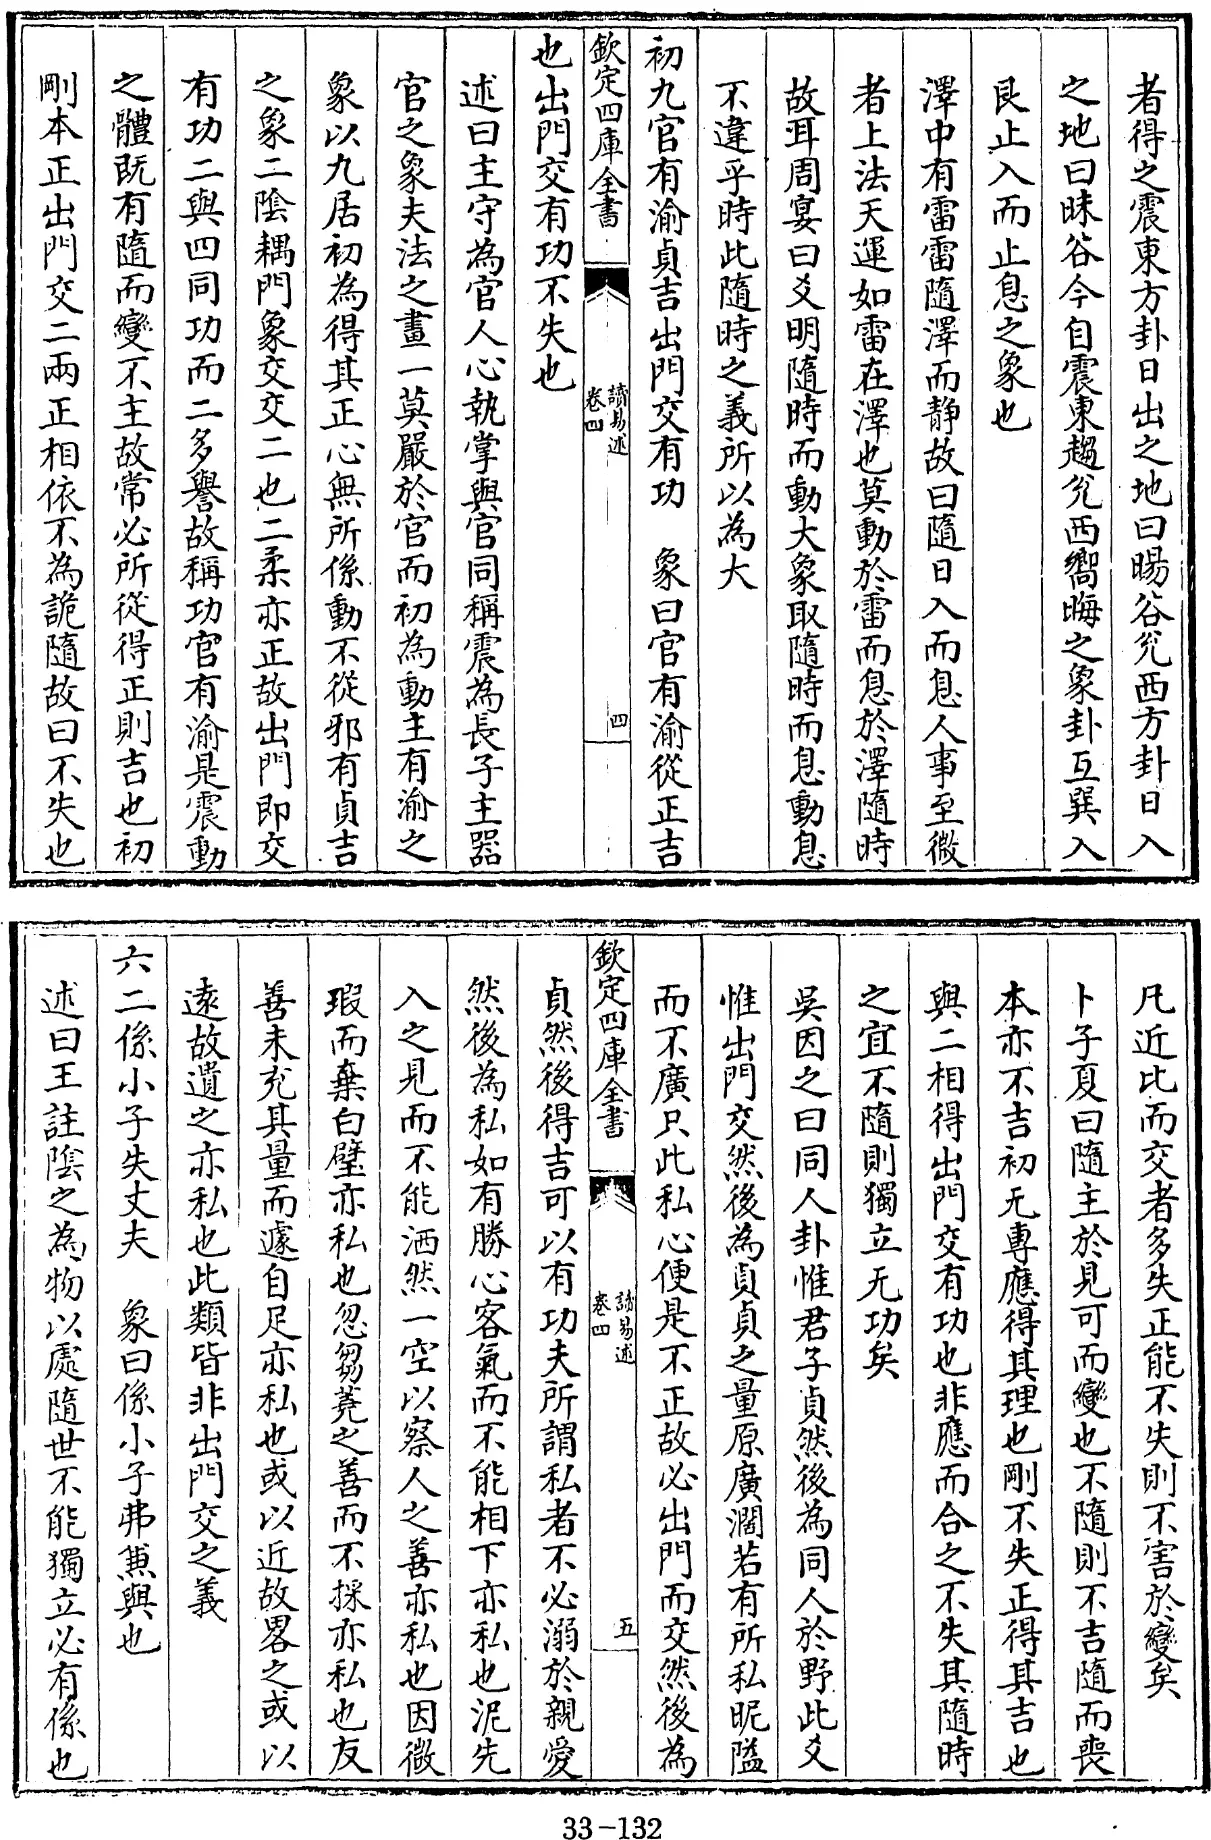 者得之震東方卦日出之地曰暘谷兊西方卦日入
之地曰昧谷今自震東趨兊西嚮晦之象卦互巽入
艮止入而止息之象也
澤中有雷雷隨澤而静故曰隨日入而息人事至微
者上法天運如雷在澤也莫動於雷而息於澤隨時
故耳周宴曰爻明隨時而動大象取隨時而息動息
不違乎時此隨時之義所以為大
初九官有渝貞吉出門交有功 象曰官有渝從正吉
欽定四庫全書
讀易述
卷四
四
也出門交有功不失也
述曰主守為官人心執掌與官同稱震為長子主器
官之象夫法之畫一莫嚴於官而初為動主有渝之
象以九居初為得其正心無所係動不從邪有貞吉
之象二陰耦門象交交二也二柔亦正故出門即交
有功二與四同功而二多譽故稱功官有渝是震動
之體既有隨而變不主故常必所從得正則吉也初
剛本正出門交二兩正相依不為詭隨故曰不失也
凡近比而交者多失正能不失則不害於變矣
卜子夏曰隨主於見可而變也不隨則不吉隨而喪
本亦不吉初无專應得其理也剛不失正得其吉也
與二相得出門交有功也非應而合之不失其隨時
之宜不隨則獨立无功矣
吳因之曰同人卦惟君子貞然後為同人於野此爻
惟出門交然後為貞貞之量原廣濶若有所私昵隘
而不廣只此私心便是不正故必出門而交然後為
欽定四庫全書
讀易述
卷四
五
貞然後得吉可以有功夫所謂私者不必溺於親愛
然後為私如有勝心客氣而不能相下亦私也泥先
入之見而不能洒然一空以察人之善亦私也因微
瑕而棄白璧亦私也忽芻蕘之善而不採亦私也友
善未充其量而遽自足亦私也或以近故畧之或以
遠故遺之亦私也此類皆非出門交之義
六二係小子失丈夫 象曰係小子弗兼與也
述曰王註陰之為物以處隨世不能獨立必有係也
33-132